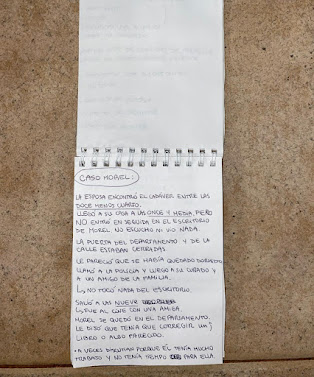 CASO MOREL:
LA ESPOSA ENCONTRÓ EL CADÁVER ENTRE LAS
DOCE MENOS CUARTO.
LLEGÓ A SU CASA A LAS ONCE Y MEDIA, PERO
NO ENTRÓ EN SEGUIDA EN EL ESCRITORIO
DE MOREL NO ESCUCHÓ NI VIO NADA.
LA PUERTA DEL DEPARTAMENTO Y DE LA
CALLE ESTABAN CERRADAS
LE PARECIÓ QUE SE HABÍA QUEDADO DORMIDO
LLAMÓ A LA POLICÍA Y LUEGO A SU CUÑADO Y
A UN AMIGO DE LA FAMILIA.
↳ NO TOCÓ NADA DEL ESCRITORIO.
SALIÓ A LAS NUEVE
↳ FUE AL CINE CON UNA AMIGA.
MOREL SE QUEDÓ EN EL DEPARTAMENTO.
LE DIJO QUE TENÍA QUE CORREGIR UN
LIBRO O ALGO PARECIDO.
• A VECES DISCUTÍAN PORQUE ÉL TENÍA MUCHO
TRABAJO Y NO TENÍA TIEMPO PARA ELLA.